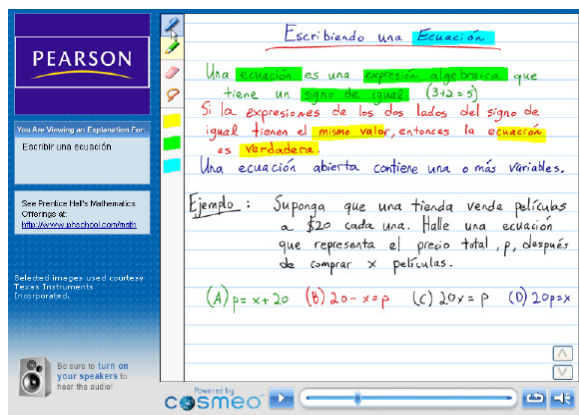 PEARSON
You Are Viewing an Explanation For:
Escribir una ecuación
See Prentice Hall's Mathematics
Offerings at:
http://www.phschool.com/math
Selected images used courtesy
Texas Instruments
Incorporated.
Be sure to turn on
your speakers to
hear the audio!
Escribiendo una Ecuación
Una ecuación es una expresión algebraica que
tiene un signo de igual (3+2=5)
Si la expresiones de los dos lados del signo de
igual tienen el mismo valor, entonces la ecuación
es verdadera.
Una ecuación abierta contiene una o más variables.
Ejemplo: Suponga que una tienda vende películas
a $20 cada una. Halle una ecuación
que representa el precio total, p, después
de comprar x películas.
(A) p=x+20 (B) 20-x=p (C) 20x=p (D) 20p=x
Powered by
cosmeo